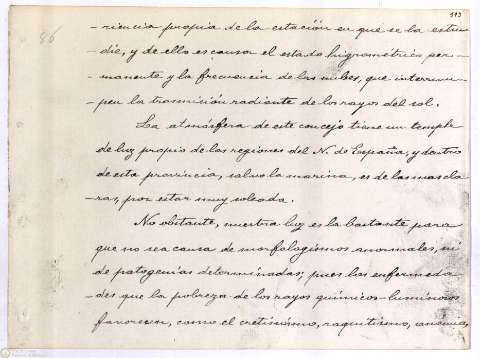 593
86
-riencia propia de la estación en que se la estu-
-die, y de ello es causa el estado higrométrico per-
-manente y la frecuencia de las nubes, que interrum-
-pen la transmisión radiante de los rayos del sol.
La atmósfera de este concejo tiene un temple
de luz propio de las regiones del N. de España, y dentro
de esta provincia, salvo la marina, es de las mas cla-
-ras, por estar muy soleada.
No obstante, nuestra luz es la bastante para
que no sea causa de morfologismos anormales, ni
de patogenias determinadas; pues las enfermeda-
-des que la pobreza de los rayos químicos-luminosos
favorecen, como el cretinismo, raquitismo, anemia,